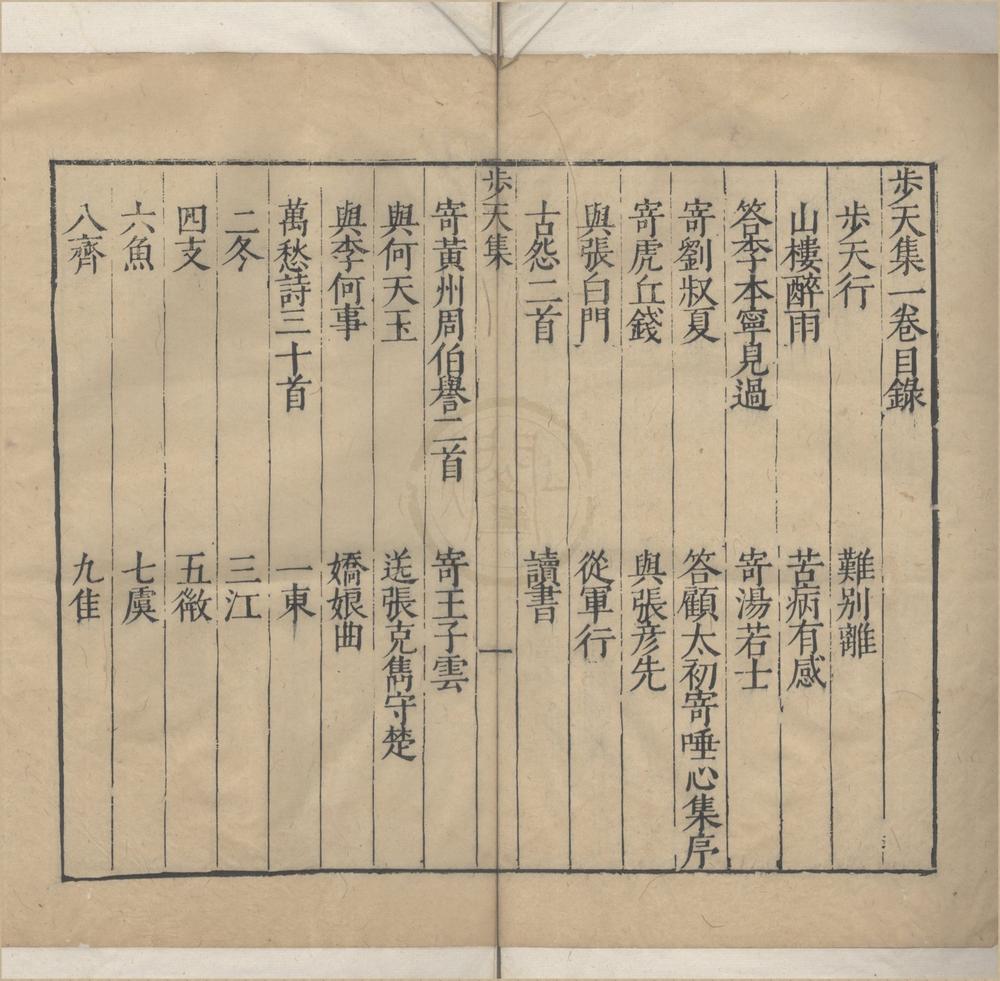 步天集一卷目錄
步天行　難别離
山樓醉雨　苦病有感
答李本寧見過　寄湯若士
寄劉叔夏　答顧太初寄唾心集序
寄虎丘錢　與張彥先
與張白門　從軍行
古怨二首　讀書
步天集　一
寄黃州周伯譽二首　寄王子雲
與何天玉　送張克雋守楚
與李何事　嬌娘曲
萬愁詩三十首　一東
二冬　三江
四支　五微
六魚　七虞
八齊　九佳